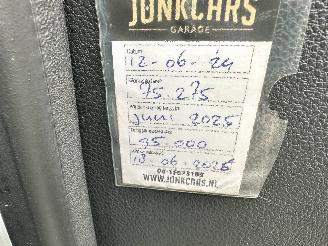 JUNKCARS
GARAGE
Datum
12-06-'24
75.275
juni 2025
95.000
13-06-2025
WWW.JUNKCARS.NL